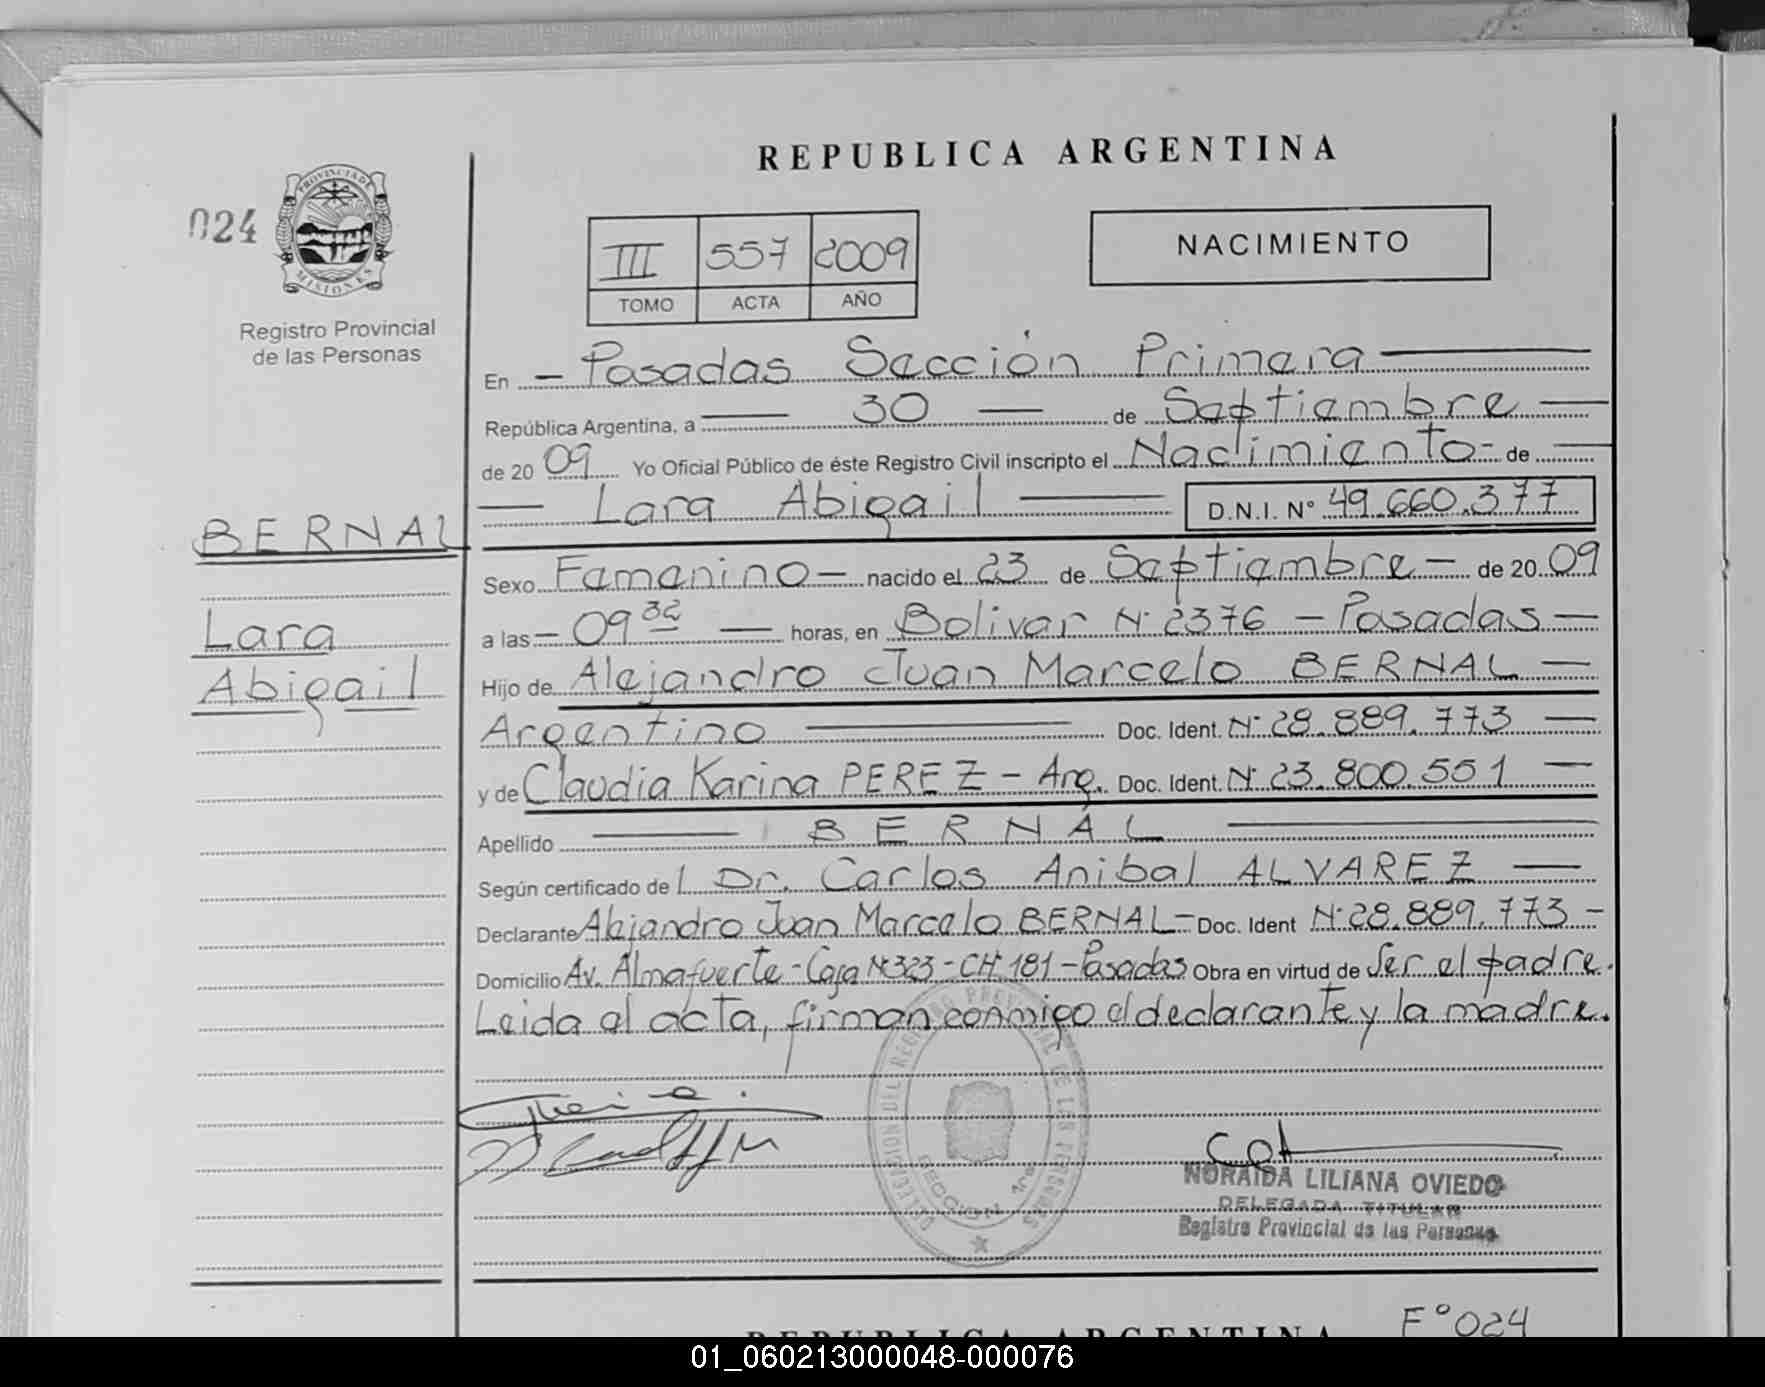 REPUBLICA ARGENTINA
024
PROVINCIA DE
MISIONES
Registro Provincial
de las Personas
III 557 2009
TOMO ACTA AÑO
NACIMIENTO
En - Posadas Sección Primera
República Argentina, a 30 de Septiembre
de 20 09 Yo Oficial Público de éste Registro Civil inscripto el Nacimiento - de
Lara Abigail D.N.I. Nº 49.660.377
BERNAL
Lara
Abigail
Sexo Femenino - nacido el 23 de Septiembre - de 20 09
a las - 09 32 - horas, en Bolivar Nº 2376 - Posadas -
Hijo de Alejandro Juan Marcelo BERNAL -
Argentino Doc. Ident. Nº 28.889.773 -
y de Claudia Karina PEREZ - Arg. Doc. Ident. Nº 23.800.551 -
Apellido BERNAL
Según certificado de Dr. Carlos Anibal ALVAREZ -
Declarante Alejandro Juan Marcelo BERNAL - Doc. Ident Nº 28.889.773 -
Domicilio Av. Almafuerte - Casa Nº 323 - CH. 181 - Posadas Obra en virtud de Ser el padre.
Leida el acta, firman conmigo el declarante y la madre.
DELEGACION DEL REGISTRO PROVINCIAL DE LAS PERSONAS
SECCION 1ra
NORAIDA LILIANA OVIEDO
DELEGADA TITULAR
Registro Provincial de las Personas
REPUBLICA ARGENTINA
Fº 024
01_060213000048-000076